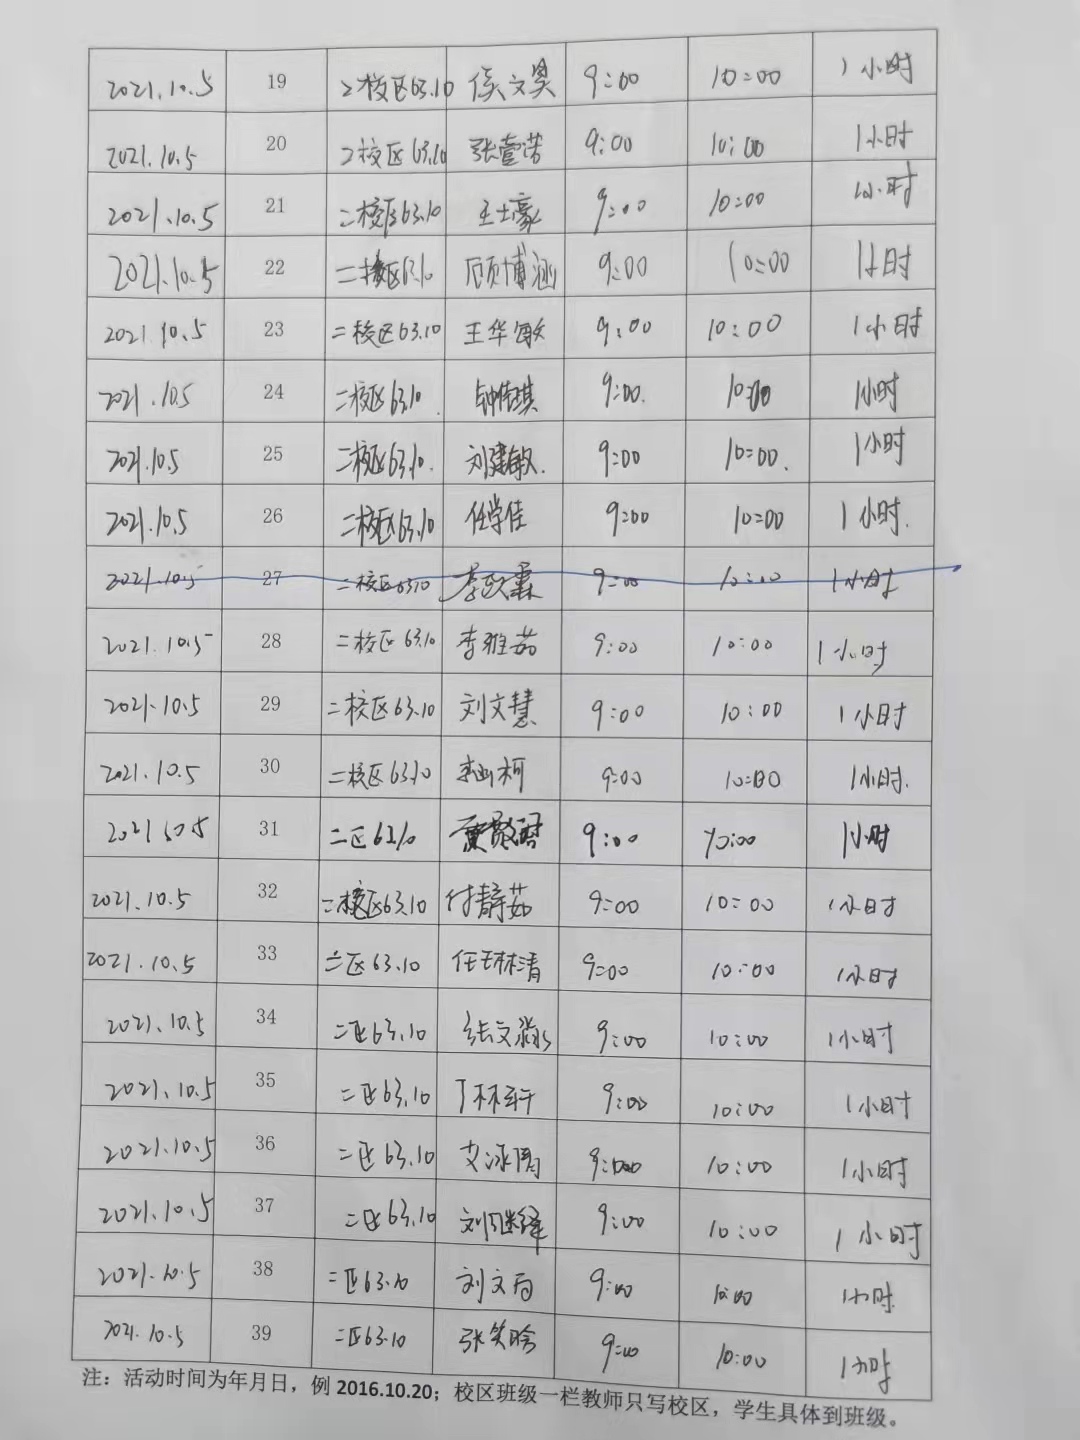 2021.10.5 19 二校区63.10 侯文昊 9:00 10:00 1小时
2021.10.5 20 二校区63.10 张萱蒂 9:00 10:00 1小时
2021.10.5 21 二校区63.10 王士豪 9:00 10:00 1小时
2021.10.5 22 二校区63.10 顾博涵 9:00 10:00 1小时
2021.10.5 23 二校区63.10 王华敏 9:00 10:00 1小时
2021.10.5 24 二校区63.10 9:00 10:00 1小时
2021.10.5 25 二校区63.10 刘建敏 9:00 10:00 1小时
2021.10.5 26 二校区63.10 任学佳 9:00 10:00 1小时
2021.10.5 27 二校区63.10 9:00 10:00 1小时
2021.10.5 28 二校区63.10 李雅茹 9:00 10:00 1小时
2021.10.5 29 二校区63.10 刘文慧 9:00 10:00 1小时
2021.10.5 30 二校区63.10 9:00 10:00 1小时
2021.10.5 31 二区63.10 9:00 10:00 1小时
2021.10.5 32 二校区63.10 付静茹 9:00 10:00 1小时
2021.10.5 33 二区63.10 任琳清 9:00 10:00 1小时
2021.10.5 34 二区63.10 张文淼 9:00 10:00 1小时
2021.10.5 35 二区63.10 丁林轩 9:00 10:00 1小时
2021.10.5 36 二区63.10 9:00 10:00 1小时
2021.10.5 37 二区63.10 刘继绎 9:00 10:00 1小时
2021.10.5 38 二区63.10 9:00 10:00 1小时
2021.10.5 39 二区63.10 张笑晗 9:00 10:00 1小时
注：活动时间为年月日，例 2016.10.20；校区班级一栏教师只写校区，学生具体到班级。